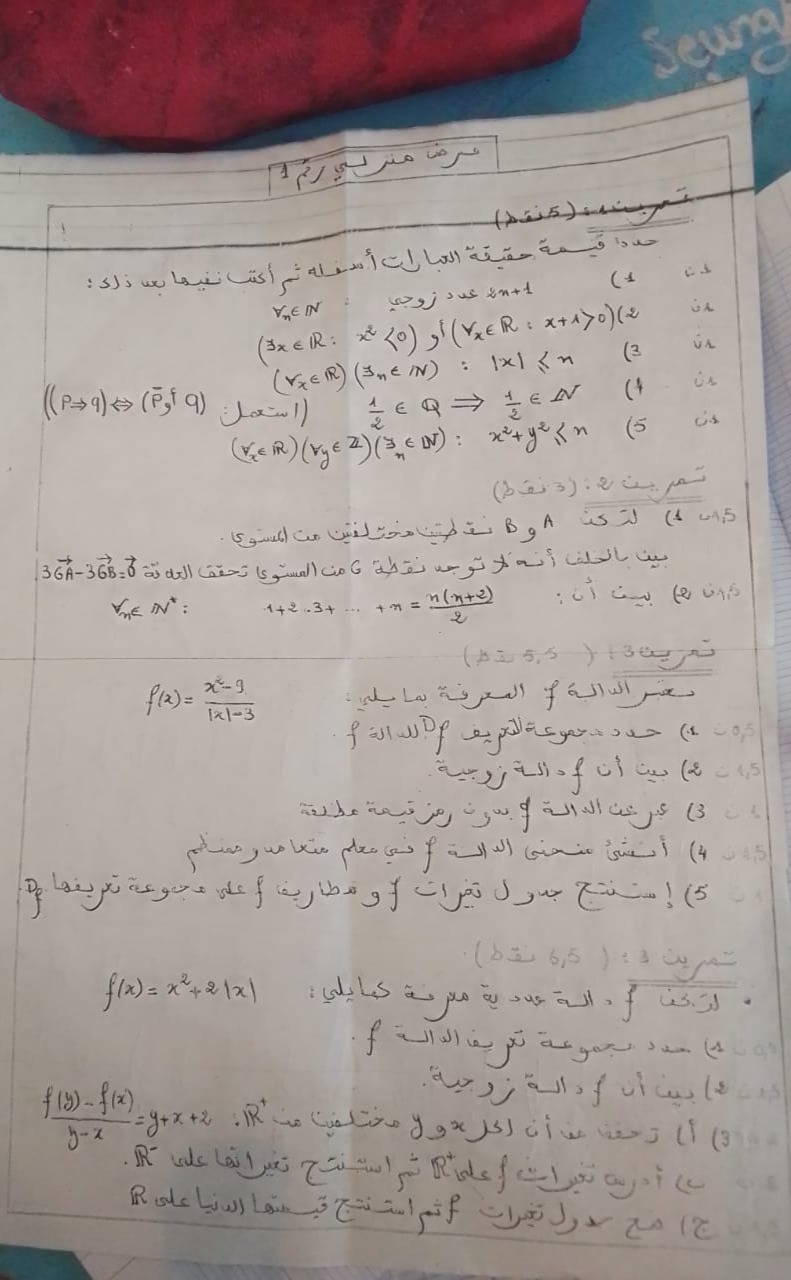 Seung
عرض منزلي رقم 1
تمرين 1: (5 نقط)
حدد قيمة حقيقة العبارات أسفله ثم أكتب نفيها بعد ذلك:
1ن 1) ∀n∈ℕ : 2n+1 عدد زوجي
1ن 2) (∃x∈ℝ : x²<0) أو (∀x∈ℝ : x+1>0)
1ن 3) (∀x∈ℝ)(∃n∈ℕ) : |x| ≤ n
1ن 4) 1/2 ∈ ℚ ⟹ 1/2 ∈ ℕ (استعمل: (P⇒q)⇔(P̄ أو q))
1ن 5) (∀x∈ℝ)(∀y∈ℤ)(∃n∈ℕ) : x²+y² ≤ n
تمرين 2: (3 نقط)
1,5ن 1) لتكن A و B نقطتين مختلفتين من المستوى.
بين بالخلف أنه لا توجد نقطة G من المستوى تحقق العلاقة 3GA⃗-3GB⃗=0⃗
1,5ن 2) بيت أن: ∀n∈ℕ* : 1+2+3+ ... +n = n(n+2)/2
تمرين 3: ( 5,5 نقط)
نعتبر الدالة f المعرفة بمايلي: f(x) = x²-9 / |x|-3
0,5ن 1) حدد مجموعة التعريف Df للدالة f.
1,5ن 2) بين أن f دالة زوجية.
1ن 3) عبر عن الدالة f بدون رمز قيمة مطلقة
1,5ن 4) أنشئ منحنى الدالة f في معلم متعامد وممنظم
1ن 5) إستنتج جدول تغيرات f ومطاريف f على مجموعة تعريفها Df.
تمرين 3: ( 6,5 نقط).
• لتكن f دالة عددية معرفة كمايلي: f(x) = x²+2|x|
1) حدد مجموعة تعريف الدالة f.
2) بين أن f دالة زوجية.
3) أ) تحقق من أن لكل x و y مختلفين من ℝ⁺: f(y)-f(x) / y-x = y+x+2
ب) أدرس تغيرات f على ℝ⁺ ثم استنتج تغيراتها على ℝ⁻.
ج) ضع جدول تغيرات f ثم استنتج قيمتها الدنيا على ℝ